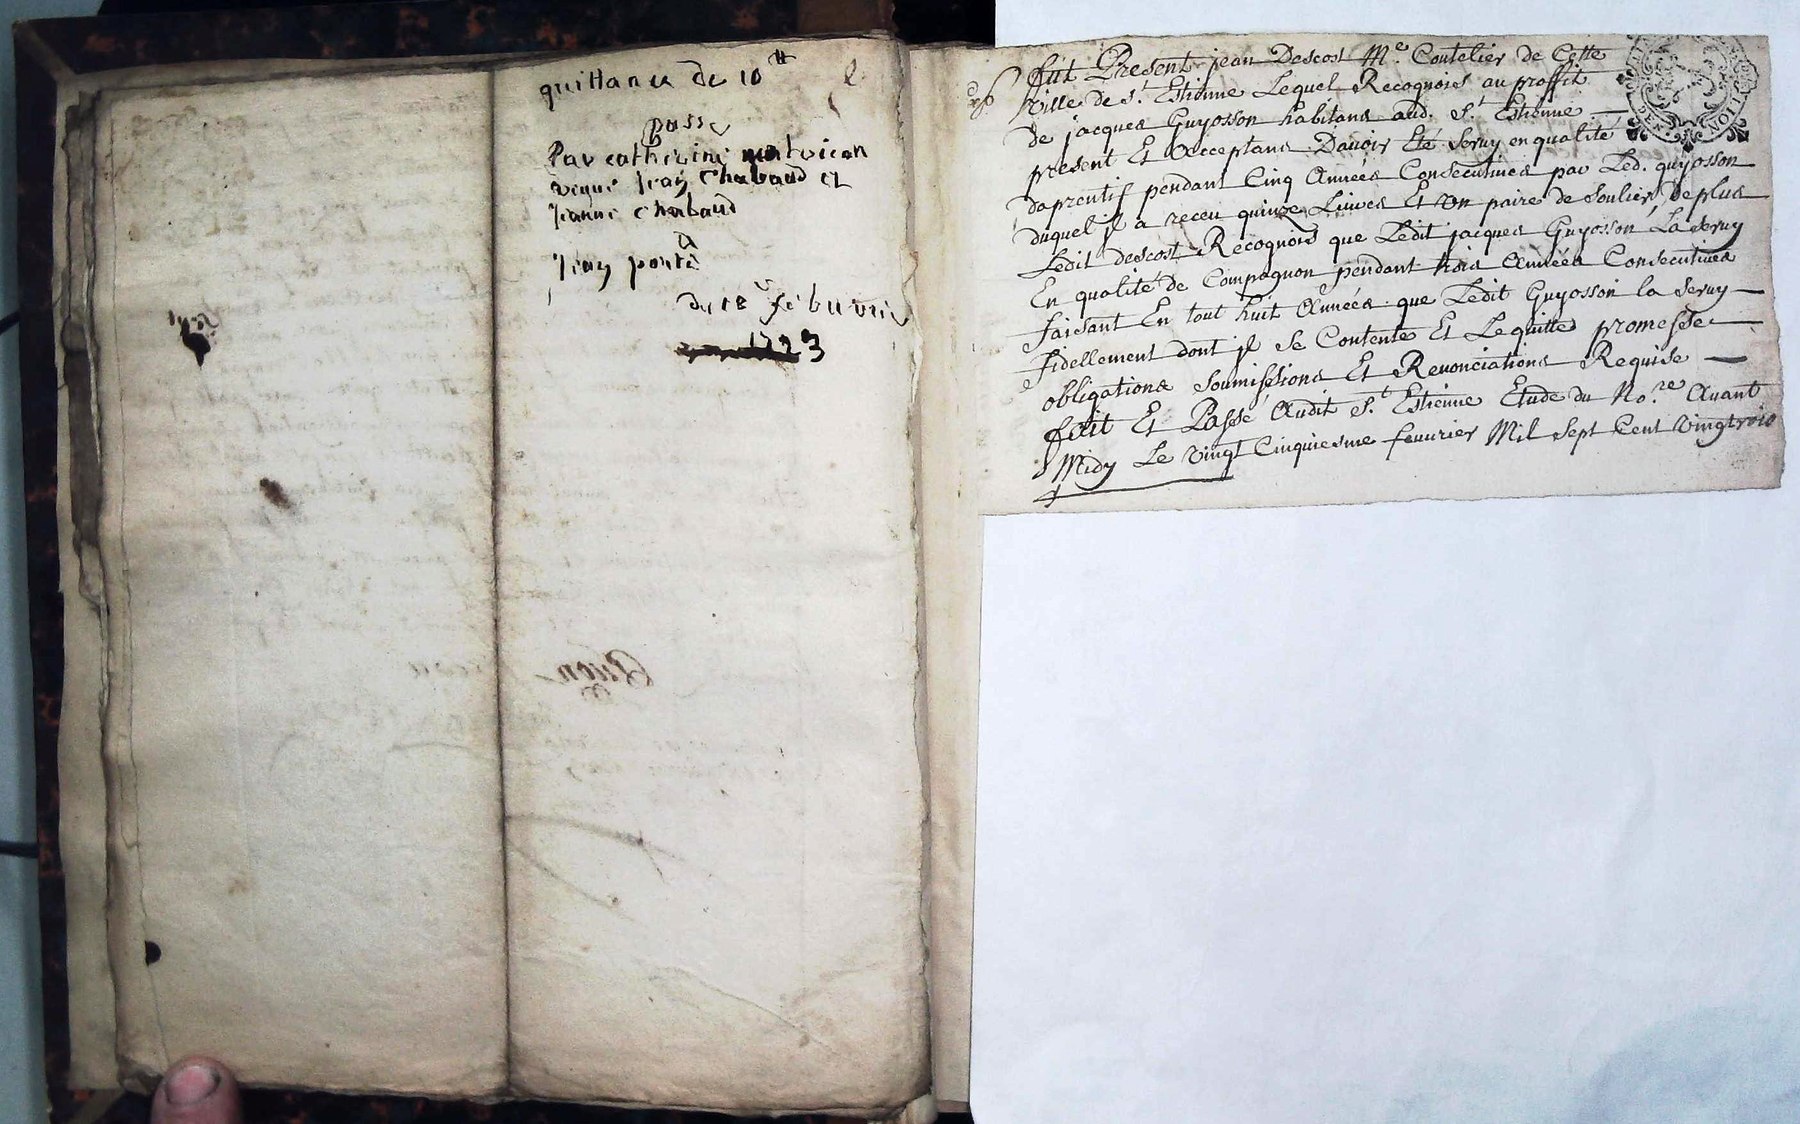 quittance de 10 ᵗᵗ
passe
Par catherine
veque Jean Chabaud et
Jeanne Chabaud
A
Jean porte
du 18 feburier
1723
fut Present jean Descos Mᵉ Coutelier de Cette
Ville de Sᵗ Estienne Lequel Recognois au proffit
de jacques Guyosson habitans aud. Sᵗ Estienne
present Et Acceptans Dauoir Eté Seruy en qualité
daprentif pendant Cinq Années Consecutiues par Led. guyosson
duquel jl a receu quinze Liures Et Un paire de Soulier, de plus
Ledit descost Recognois que Ledit jacques Guyosson La Seruy
En qualité de Compagnon pendant trois Années Consecutiues
faisant En tout huit Années que Ledit Guyosson la Seruy
fidellement dont jl Se Contente Et Lequitte promesse
obligations Soumissions Et Renonciations Requise
fait Et Passé Audit Sᵗ Estienne Etude du No.ʳᵉ Auant
Midy Le Vingt Cinquiesme feuurier Mil Sept Cent Vingtrois